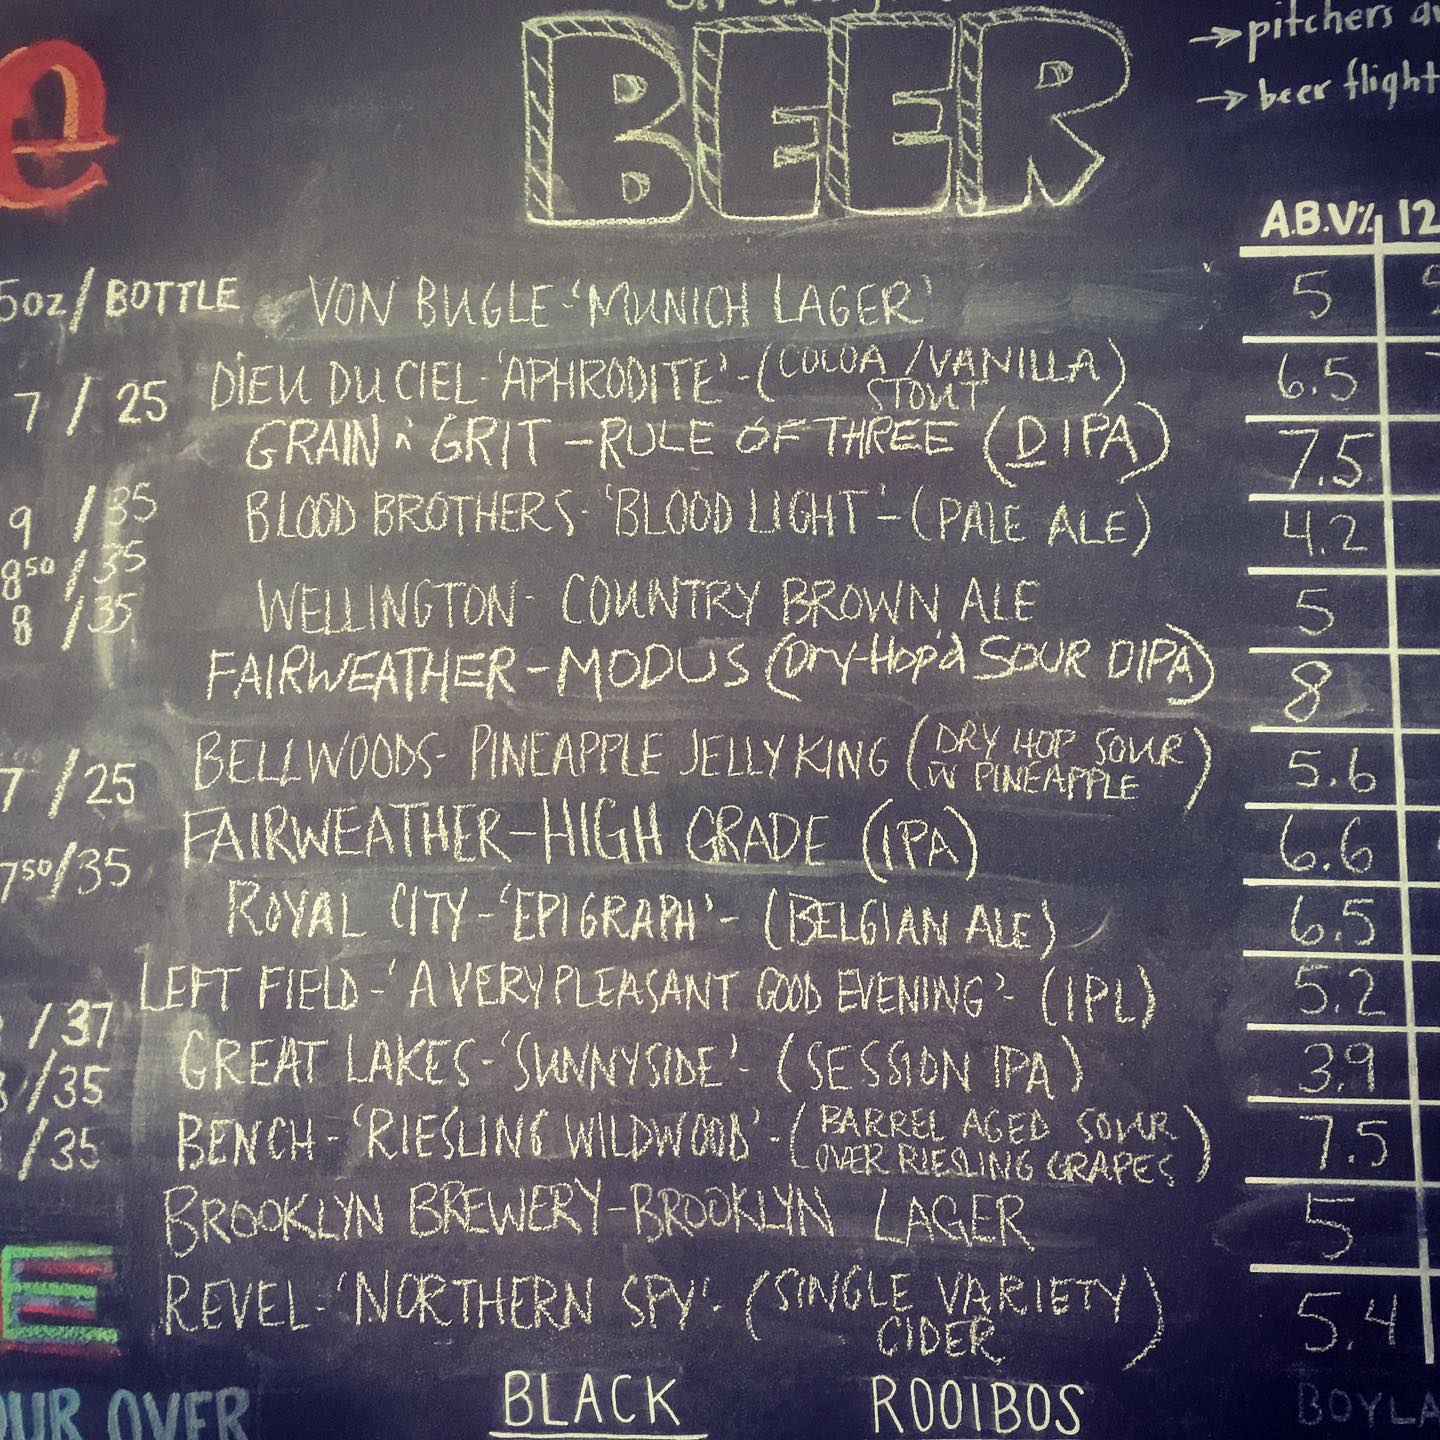 BEER
→ pitchers
→ beer flight
A.B.V% 12
5oz / BOTTLE
VON BUGLE - 'MUNICH LAGER' 5
7 / 25
DIEU DU CIEL - 'APHRODITE' - (COCOA / VANILLA STOUT 6.5
GRAIN & GRIT - RULE OF THREE (DIPA) 7.5
9 / 35
BLOOD BROTHERS - 'BLOOD LIGHT' - (PALE ALE) 4.2
8 50 / 35
8 / 35
WELLINGTON - COUNTRY BROWN ALE 5
FAIRWEATHER - MODUS (Dry-Hop'd SOUR DIPA) 8
7 / 25
BELLWOODS - PINEAPPLE JELLY KING (DRY HOP SOUR W PINEAPPLE) 5.6
7 50 / 35
FAIRWEATHER - HIGH GRADE (IPA) 6.6
ROYAL CITY - 'EPIGRAPH' - (BELGIAN ALE) 6.5
LEFT FIELD - 'A VERY PLEASANT GOOD EVENING' - (IPL) 5.2
/ 37
GREAT LAKES - 'SUNNYSIDE' - (SESSION IPA) 3.9
/ 35
BENCH - 'RIESLING WILDWOOD' - (BARREL AGED SOUR OVER RIESLING GRAPES) 7.5
/ 35
BROOKLYN BREWERY - BROOKLYN LAGER 5
REVEL - 'NORTHERN SPY' - (SINGLE VARIETY CIDER) 5.4
OUR OVER
BLACK
ROOIBOS
BOYLA